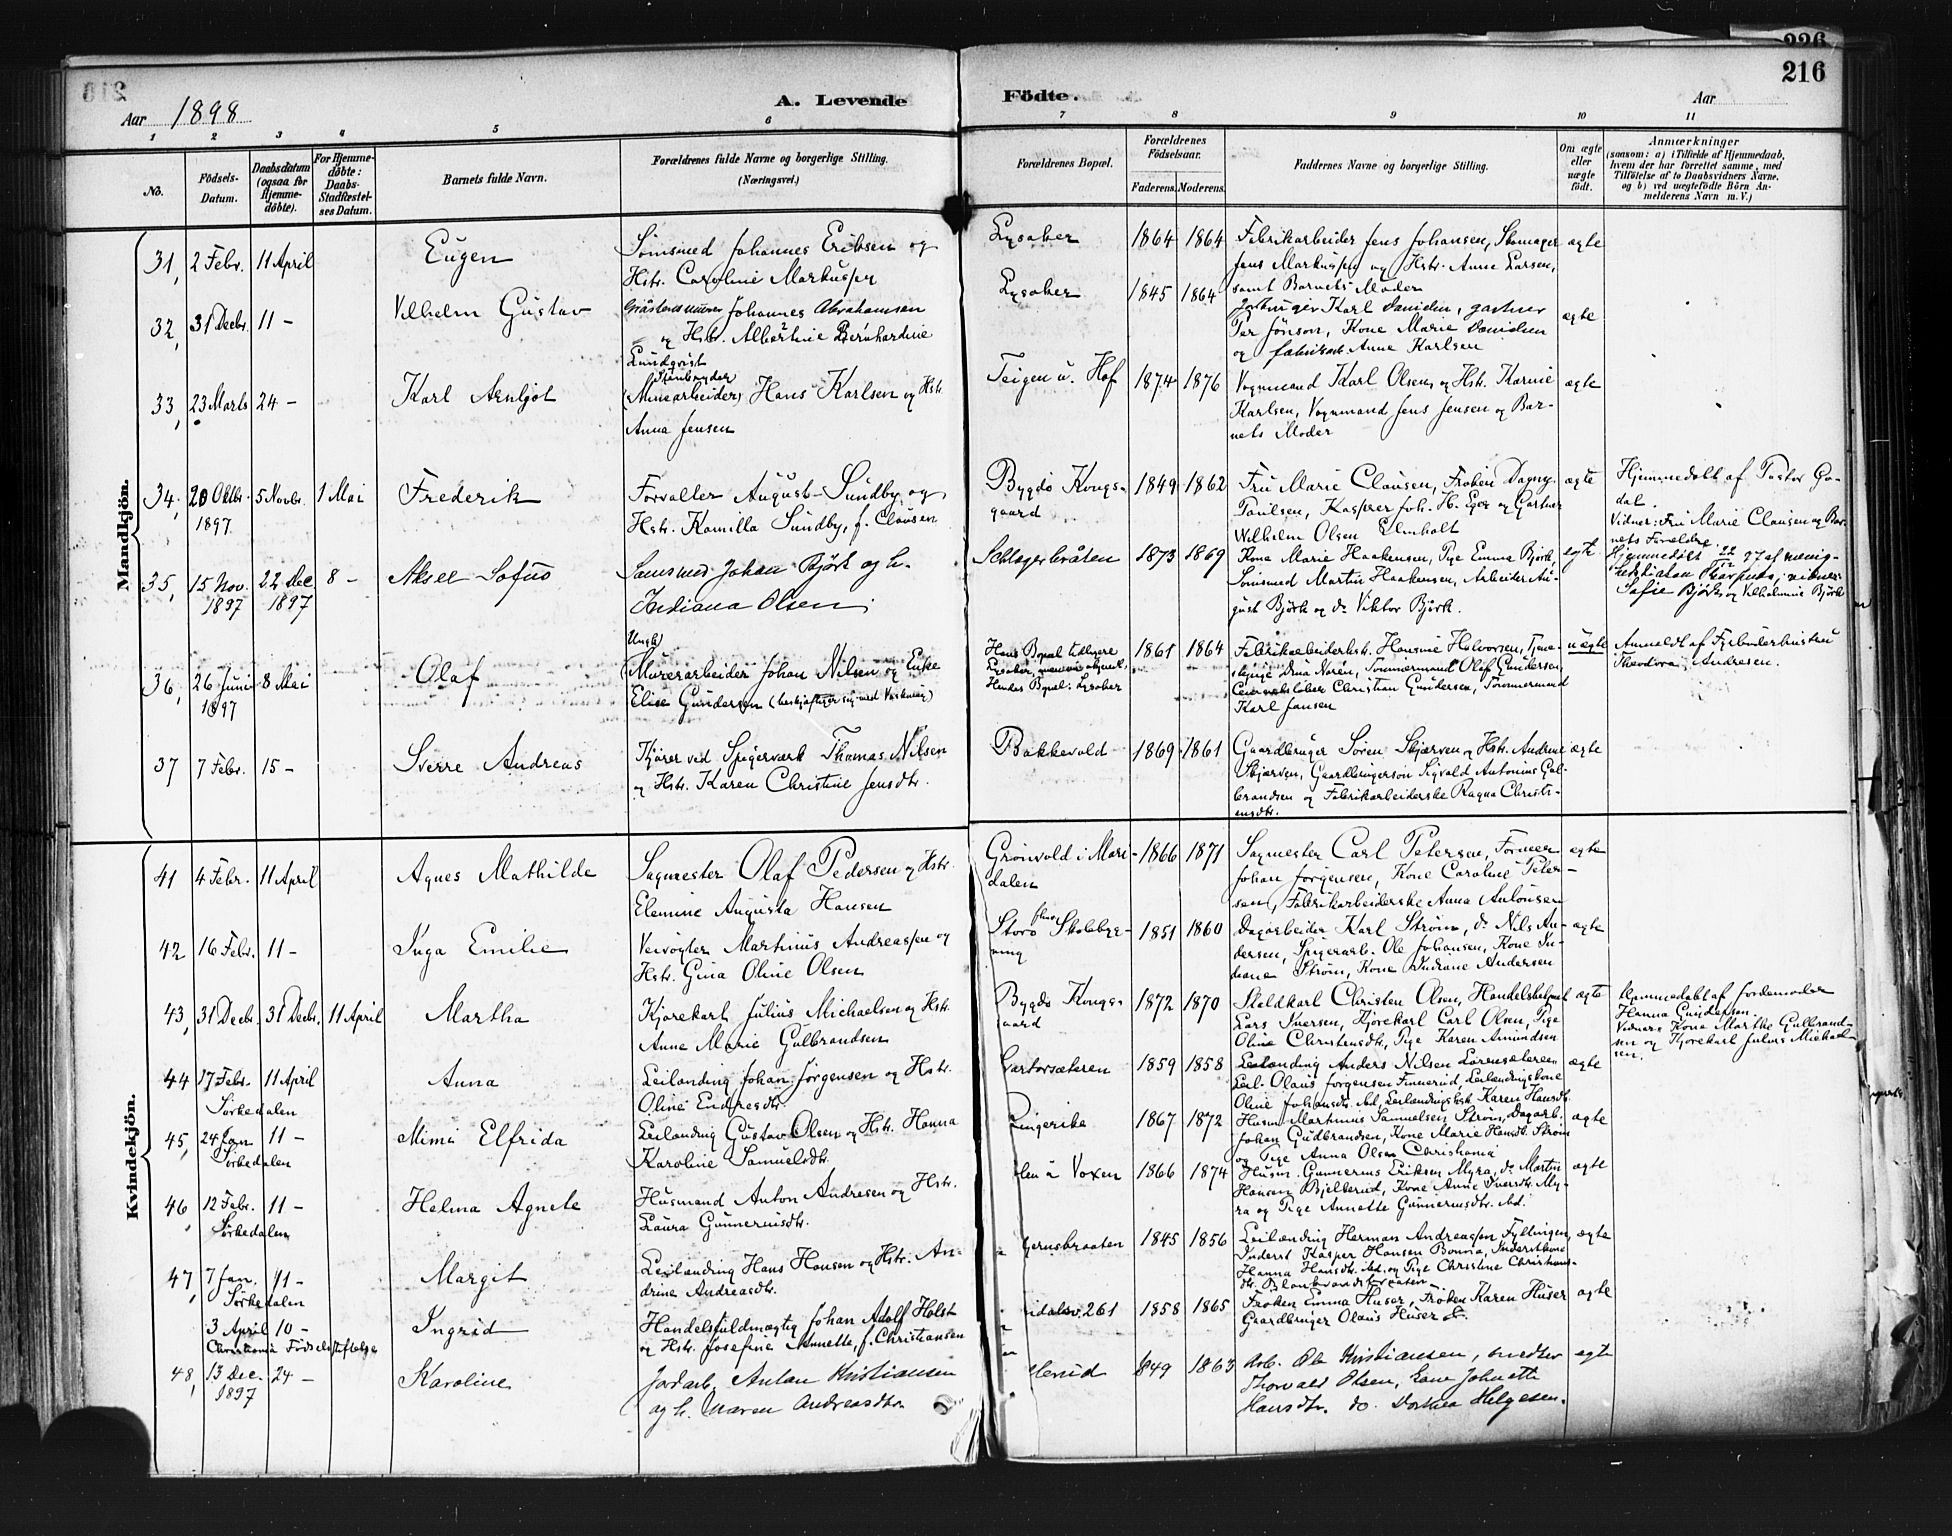 226
216
Aar 1898
A. Levende
Födte.
Aar
1 2 3 4 5 6 7 8 9 10 11
No.
Födsels-
Datum.
Daabsdatum
(ogsaa for
Hjemme-
döbte).
For Hjemme-
döbte:
Daabs-
Stadfæstel-
ses Datum.
Barnets fulde Navn.
Forældrenes fulde Navne og borgerlige Stilling.
(Næringsvei.)
Forældrenes Bopæl.
Forældrenes
Födselsaar.
Faderens. Moderens.
Faddernes Navne og borgerlige Stilling.
Om ægte
eller
uægte
födt.
Anmærkninger
(saasom: a) i Tilfælde af Hjemmedaab,
hvem der har forrettet samme, med
Tilföielse af to Daabsvidners Navne.
og b) ved uægtefödte Börn An-
melderens Navn m. V.)
Mandkjön.
31, 2 Febr. 11 April Eugen
Sömsmed Johannes Eriksen og
Hstr. Caroline Markussen
Lysaker 1864 1864
Fabrikarbeider Jens Johansen, Skomager
Jens Markussen og Hstr. Anne Larsen,
samt Barnets Moder
ægte
32, 31 Decbr. 11 - Vilhelm Gustav
Gråstensmurer Johannes Abrahamsen
og Hstr. Albertine Bernhardine
Lundqvist
Lysaker 1845 1864
Karl Danielsen, gartner
Per Jönson, Kone Marie Danielsen
og fabrikarb. Anna Karlsen
ægte
33, 23 Marts 24 - Karl Arnljot
Stenhugger
(Minearbeider) Hans Karlsen og Hstr.
Anna Jensen
Teigen u. Hof 1874 1876
Vognmand Karl Olsen og Hstr. Karine
Karlsen, Vognmand Jens Jensen og Bar-
nets Moder
ægte
34, 20 Oktbr. 5 Novbr. 1 Mai Frederik
1897
Forvalter August Sundby og
Hstr. Kamilla Sundby, f. Clausen
Bygdö Kongs-
gaard
1849 1862
Fru Marie Clausen, Fröken Dagny
Paulsen, Kasserer Joh. H. Eger og Gartner
Wilhelm Olsen Elmholt
ægte
Hjemmedöbt af Pastor Go-
dal.
Vidner: Fru Marie Clausen og Bar-
nets Forældre.
35, 15 Nov. 22 Dec. 8 - Aksel Sofus
1897 1897
Sömsmed Johan Björk og h.
Indiana Olsen
Schlagerbråten 1873 1869
Kone Marie Haakensen, Pige Emma Björk,
Sömsmed Martin Haakensen, Arbeider Au-
gust Björk og do Viktor Björk.
ægte
Hjemmedöbt 22/12 97 af menig-
hedsdiakon vidner:
Sofie Björk og Vilhelmine Björk
36, 26 Juni 8 Mai Olaf
1897
Ungk.
Murerarbeider Johan Nilsen og Enke
Elise Gundersen (beskjæftiger sig med Vaskning)
Hans Bopæl tidligere
Lysaker,
Hendes Bopæl: Lysaker
1861 1864
Fabrikarbeiderhstr. Hansine Halvorsen, Tjene-
stepige Dina Noren, Tömmermand Olaf Gundersen,
Christian Gundersen, Tömmermand
Karl Jansen
uægte
Anmeldt af Fyrböderhustru
Theodora Andresen.
37 7 Febr. 15 - Sverre Andreas
Kjörer ved Spigerværk Thomas Nilsen
og Hstr. Karen Christine Jensdtr.
Bakkevold 1869 1861
Gaardbruger Sören Skjærven og Hstr. Andrine
Skjærven, Gaardbrugersön Sigvald Antonius Gul-
brandsen og Fabrikarbeiderske Ragna Christi-
ansdtr.
ægte
Kvindekjön.
41 4 Febr. 11 April Agnes Mathilde
Sagmester Olaf Pedersen og Hstr.
Elemine Augusta Hansen
Grönvold i Mari-
dalen
1866 1871
Sagmester Carl Petersen, Former
Johan Jorgensen, Kone Caroline Peter-
sen, Fabrikarbeiderske Anna Antonsen
ægte
42 16 Febr. 11 - Inga Emilie
Veivogter Martinus Andreassen og
Hstr. Gina Oline Olsen
Storö Skolebyg-
ning
1851 1860
Dagarbeider Karl Ström, do Nils An-
dersen, Spigerarb. Ole Johansen, Kone In-
diane Ström, Kone Indiane Andersen
ægte
43, 31 Decbr. 31 Decbr. 11 April Martha
Kjörekarl Julius Michaelsen og Hstr.
Anne Marie Gulbrandsen
Bygdö Kongs-
gaard
1872 1870
Staldkarl Christen Olsen, Handelsbetjent
Lars Iversen, Kjörekarl Carl Olsen, Pige
Oline Christensdtr, Pige Karen Amundsen
ægte
Hjemmedöbt af Jordemoder
Hanna Gundersen.
Vidner: Kone Marthe Gulbrand-
sen og Kjörekarl Julius Michael-
sen.
44 17 Febr. 11 April Anna
Sörkedalen
Leilænding Johan Jörgensen og Hstr.
Oline Endresdtr.
1859 1858
Leilænding Anders Nilsen
Leil. Olaus Jorgensen Finnerud, Leilændingskone
Oline Johansdtr. ibd, Karen Hansdtr.
ægte
45, 24 Jan. 11 - Mimi Elfrida
Sörkedalen
Leilænding Gustav Olsen og Hstr. Hanna
Karoline Samuelsdtr.
Ringerike 1867 1872
Husm. Martinus Samuelsen Ström, Dagarb.
Johan Gudbrandsen, Kone Marie Hansdtr. Ström
og Pige Anna Olsen Christiania
ægte
46 12 Febr. 11 - Helma Agnete
Sörkedalen
Husmand Anton Andresen og Hstr.
Laura Gunnerusdtr.
Voxen 1866 1874
Husm. Gunnerius Eriksen Myra, do Martin
Hansen Bjelterud, Kone Anne Iversdtr. My-
ra og Pige Annette Gunnerusdtr. ibd.
ægte
47, 7 Jan. 11 - Margit
Sörkedalen
Leilænding Hans Hansen og Hstr. An-
drine Andreasdtr.
1845 1856
Leilænding Herman Andreassen Fyllingen,
Inderst Kasper Hansen Bonna, Inderstkone
Hanna Hansdtr. ibd. og Pige Christine Christians-
dtr.
ægte
3 April 10 - Ingrid
Christiania Födselsstiftelse
Handelsfuldmægtig Johan Adolf Holst
og Hstr. Josefine Annette, f. Christiansen
261 1858 1865
Fröken Emma Huser, Fröken Karen Huser
Gaardbruger Olaus Huser
ægte
48, 13 Dec. 24 - Karoline
1897
Jordarb. Anton Kristiansen
og h. Maren Andreasdtr.
1849 1863
Arb. Ole Kristiansen, smedsv.
Thorvald Olsen, kone Johnette
Hansdtr. do. Dorthea Helgesen.
ægte